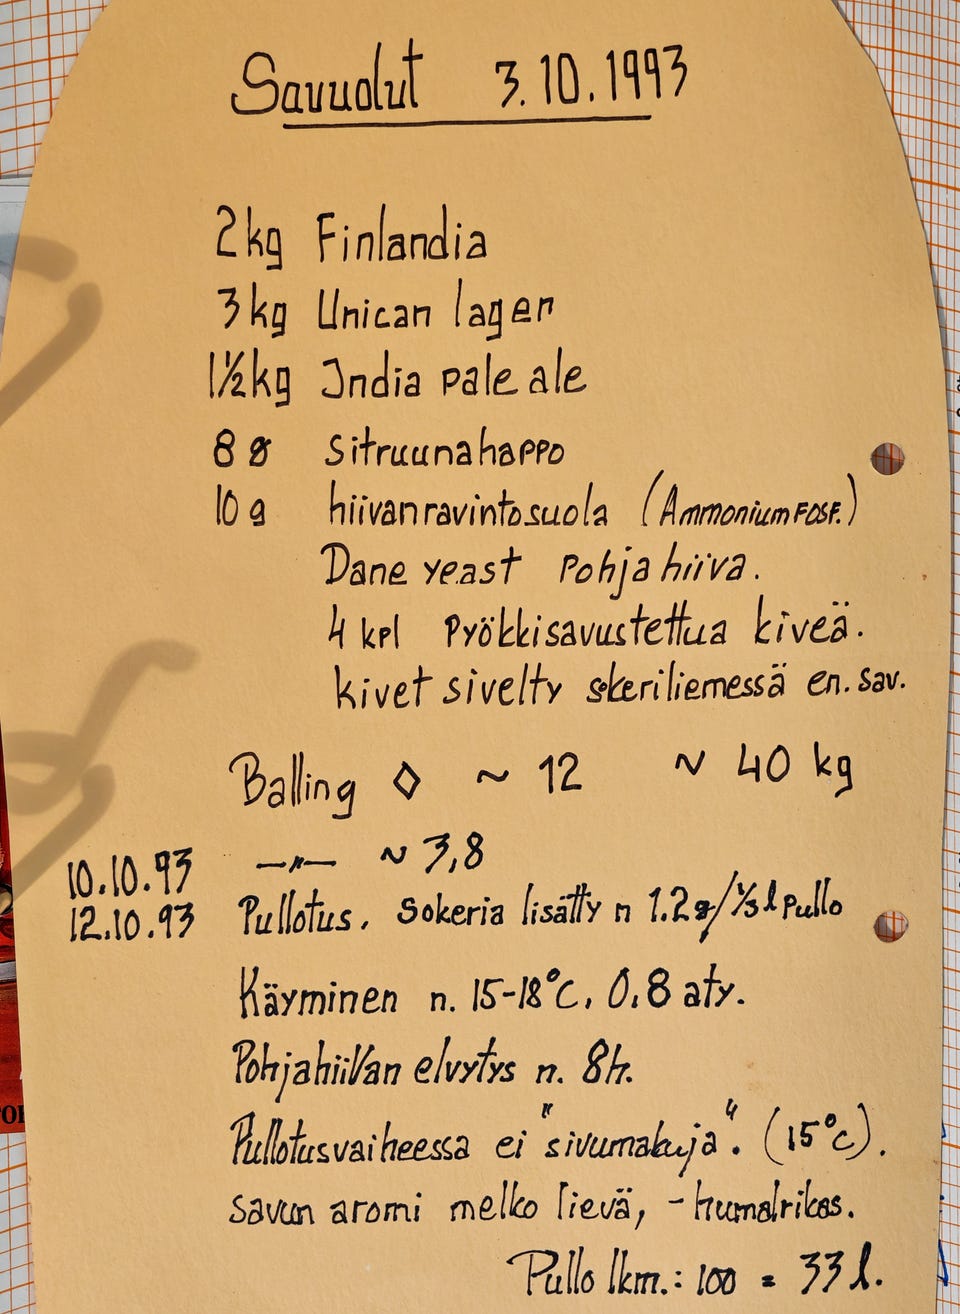 Savuolut 3.10.1993
2kg Finlandia
3kg Unican lager
1½kg India pale ale
8 g sitruunahappo
10 g hiivanravintosuola (AmmoniumFOSF.)
Dane yeast Pohjahiiva.
4 kpl Pyökkisavustettua kiveä.
kivet sivelty sokeriliemessä en. sav.
Balling ◊ ~ 12 ~ 40 kg
10.10.93 —"— ~ 3,8
12.10.93 Pullotus. Sokeria lisätty n 1.2g/⅓l Pullo
Käyminen n. 15-18°C. 0.8 aty.
Pohjahiivan elvytys n. 8h.
Pullotusvaiheessa ei "sivumakuja". (15°C).
savun aromi melko lievä, - humalrikas.
Pullo lkm.: 100 = 33 l.